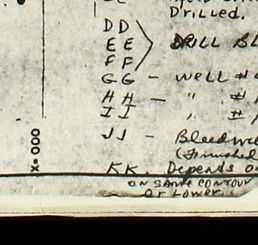 Drilled.
DD
EE DRILL BL
FF
GG - Well #
HH - " #
II " #
JJ - Bleed we
(Finished
KK. Depends on
ON SAME CONTOUR
OR LOWER.
X= 000